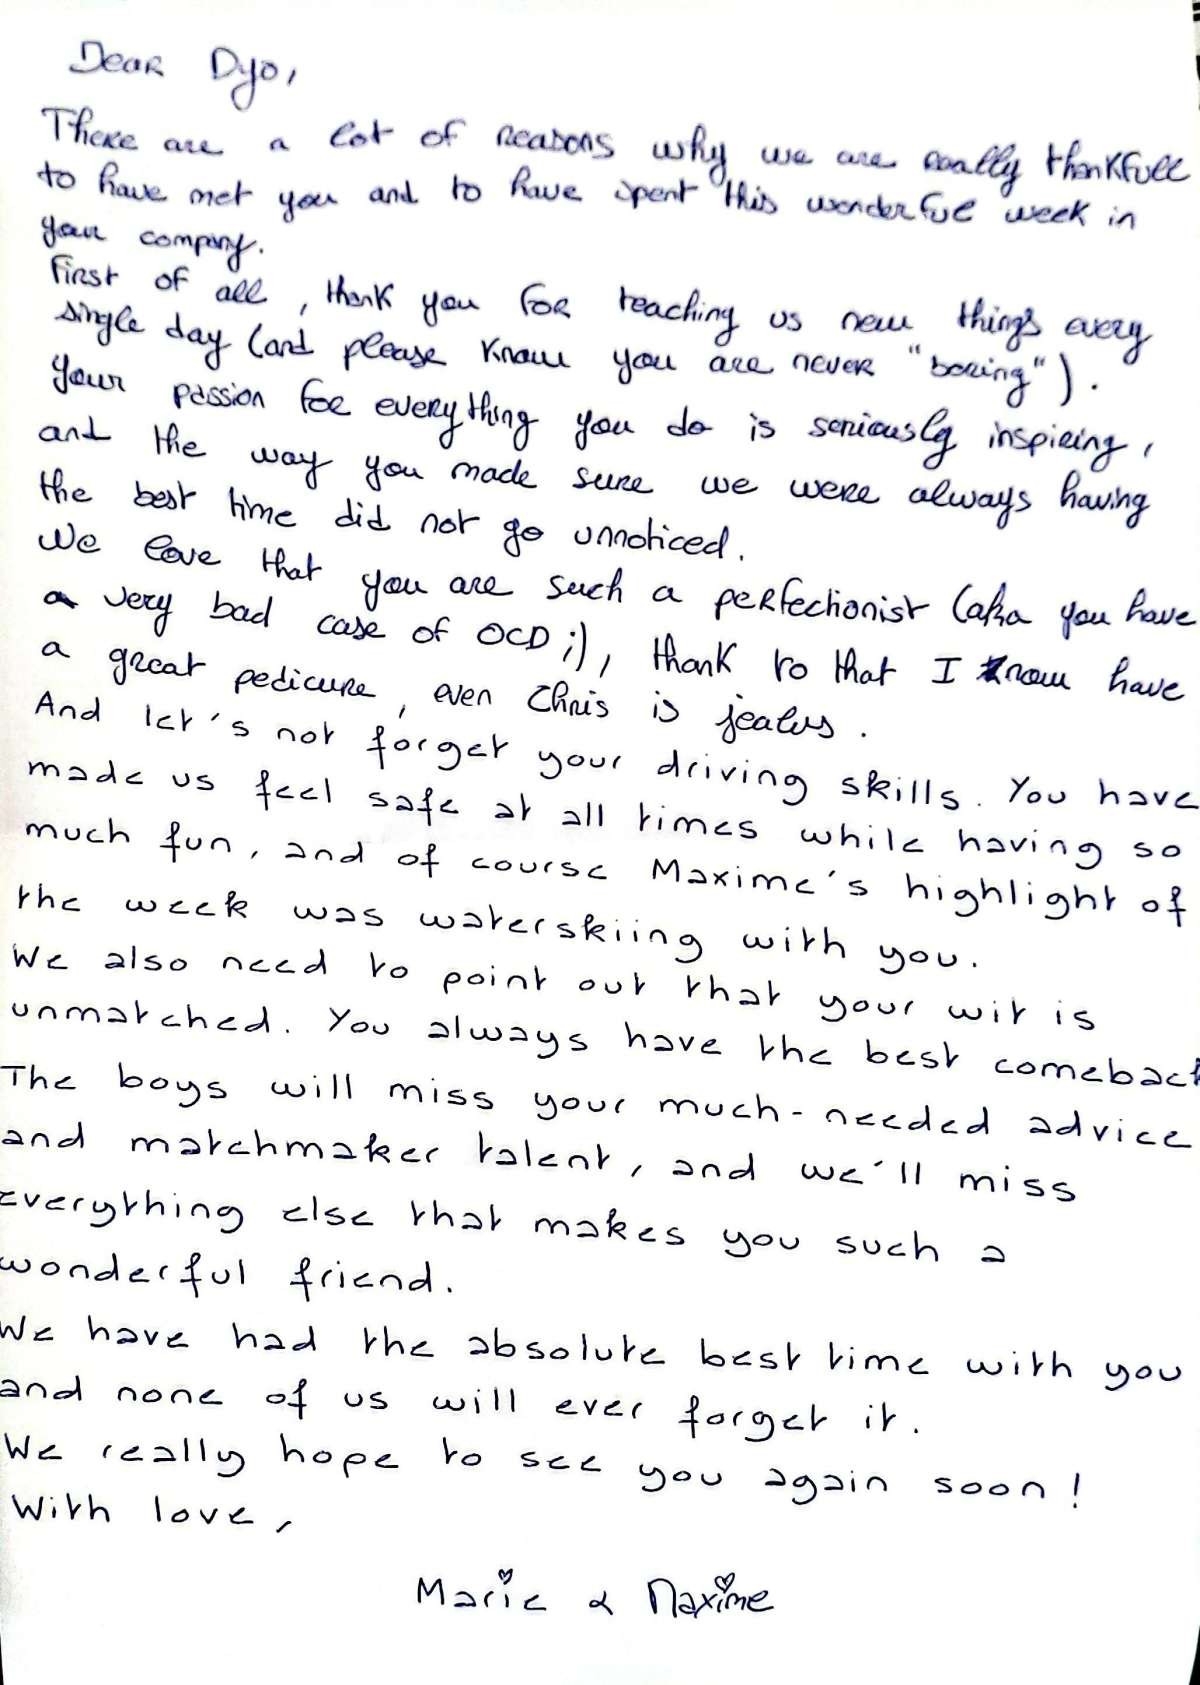 Dear Dyo,
There are a lot of reasons why we are really thankfull
to have met you and to have spent this wonderful week in
your company.
First of all, thank you for teaching us new things every
single day (and please know you are never "boring").
Your passion for everything you do is seriously inspiring,
and the way you made sure we were always having
the best time did not go unnoticed.
We love that you are such a perfectionist (aka you have
a very bad case of OCD ;), thank to that I now have
a great pedicure, even Chris is jealus.
And let's not forget your driving skills. You have
made us feel safe at all times while having so
much fun, and of course Maxime's highlight of
the week was waterskiing with you.
We also need to point out that your wit is
unmatched. You always have the best comeback
The boys will miss your much-needed advice
and matchmaker talent, and we'll miss
everything else that makes you such a
wonderful friend.
We have had the absolute best time with you
and none of us will ever forget it.
We really hope to see you again soon!
With love,
Marie & Maxime